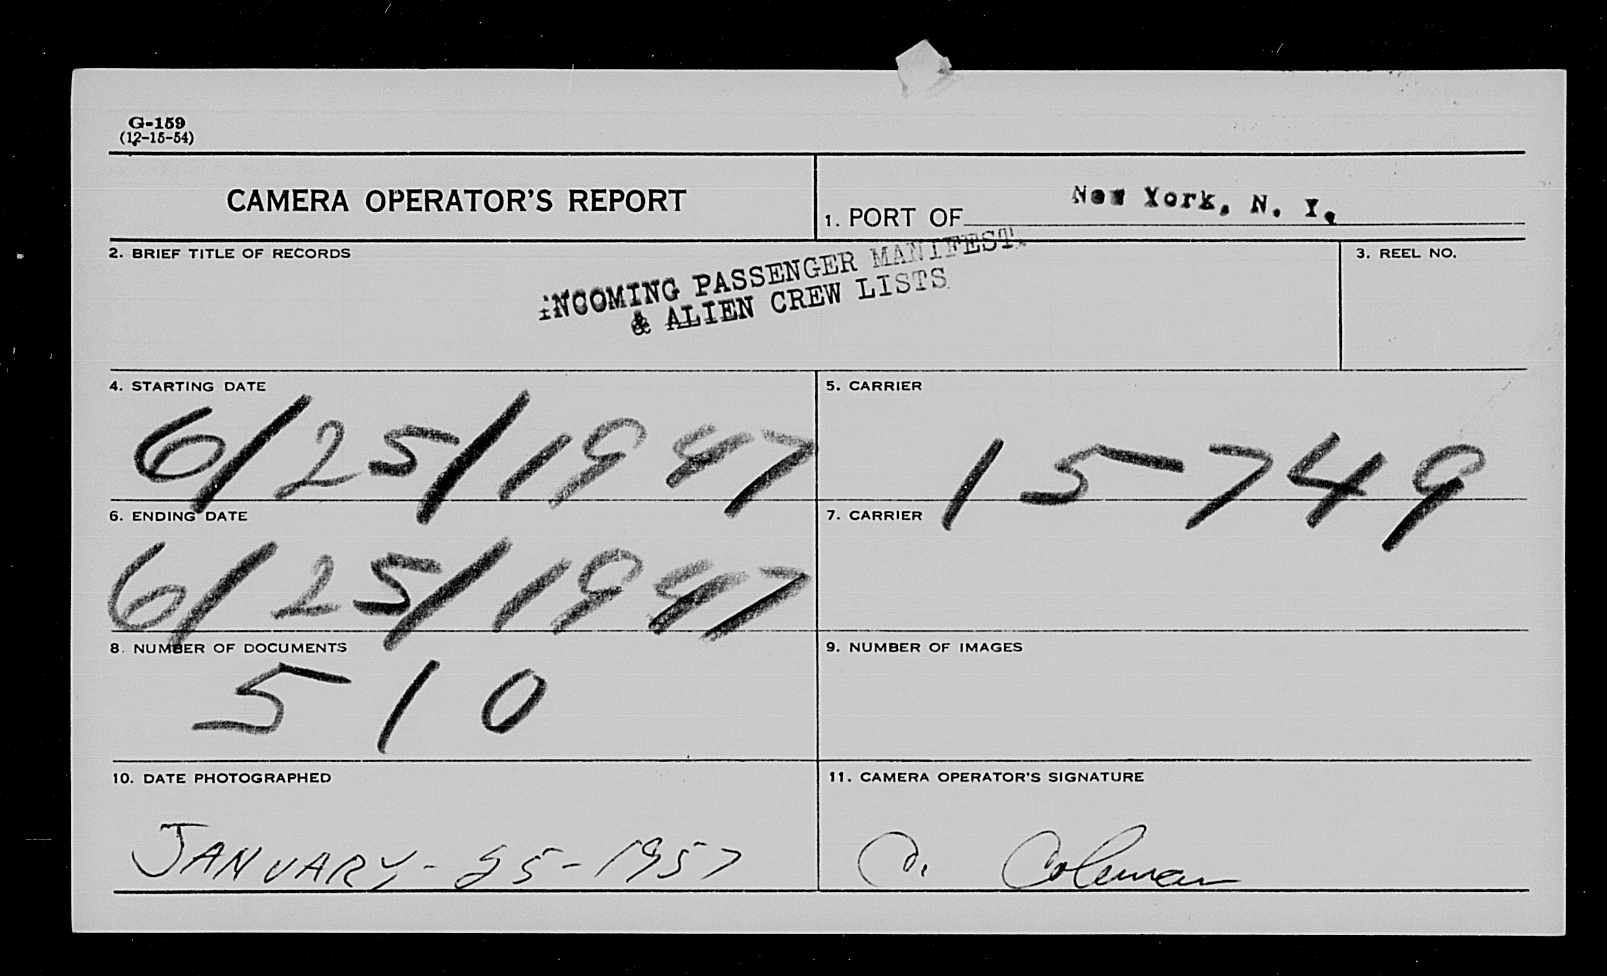 G-159
(12-15-54)
CAMERA OPERATOR'S REPORT
1. PORT OF New York, N. Y.
2. BRIEF TITLE OF RECORDS
INCOMING PASSENGER MANIFEST
& ALIEN CREW LISTS
3. REEL NO.
4. STARTING DATE
6/25/1947
5. CARRIER
15-749
6. ENDING DATE
6/25/1947
7. CARRIER
8. NUMBER OF DOCUMENTS
510
9. NUMBER OF IMAGES
10. DATE PHOTOGRAPHED
JANUARY-25-1957
11. CAMERA OPERATOR'S SIGNATURE
Coleman